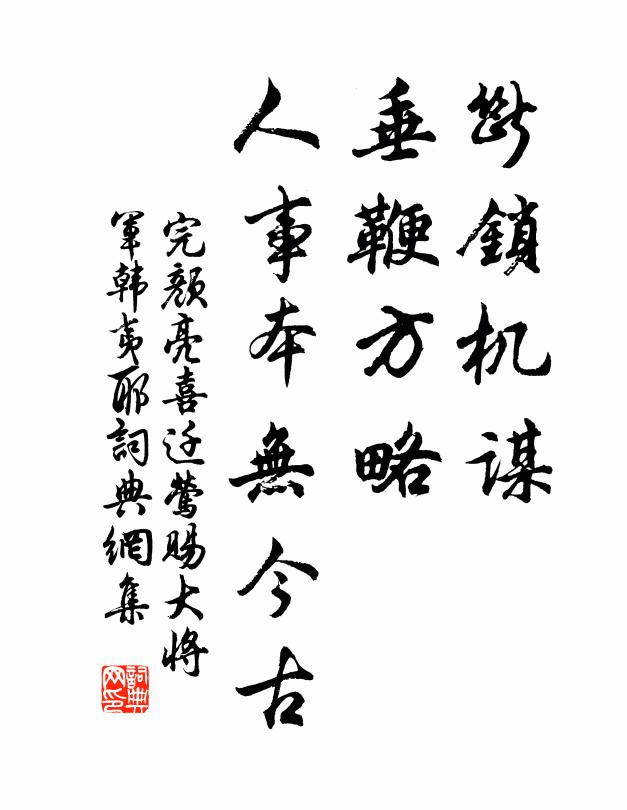 断鎖机谋
垂鞭方略
人事本無今古
完颜亮喜迁鶯賜大将
軍韩夷耶詞典網集
詞典
网印